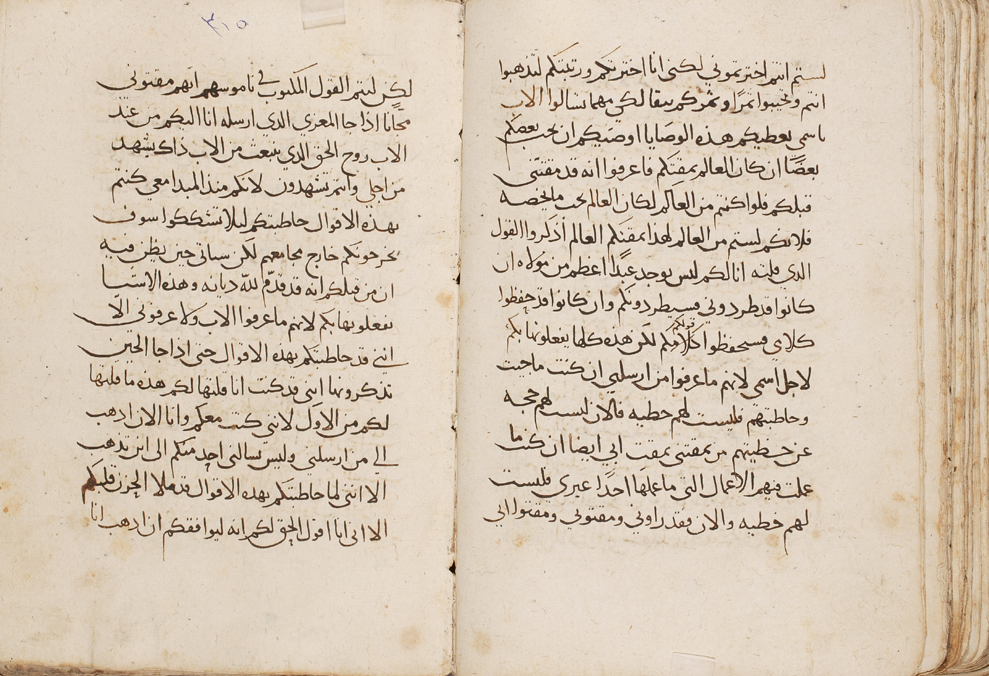 لستم انتم اخترتموني لكني انا اخترتكم ورتبتكم لتذهبوا
انتم وتجيبوا ثمرًا وثمركم يبقا لكي مهما تسالوا الاب
باسمي يعطيكم هذه الوصايا اوصيكم ان يحب بعضكم
بعضًا ان كان العالم يمقتكم فاعرفوا انه قد مقتني
قبلكم فلو اكنتم من العالم لكان العالم يحب ما يخصه
فلانكم لستم من العالم لهذا يمقتكم العالم اذكروا القول
الذي قلته انا لكم ليس يوجد عبدًا اعظم من مولاه ان
كانوا قد طردوني فسيطردونكم وان كانوا قد حفظوا
كلامي فسيحفظوا كلامكم لكن هذه كلها يفعلونها بكم
قولكم
لاجل اسمي لانهم ما عرفوا من ارسلني ان كنت ما جيت
وخاطبتهم فليست لهم خطيه فالان ليست لهم حجه
عن خطيتهم من يمقتني يمقت ابي ايضا ان كنت ما
عملت فيهم الاعمال التي ما عملها احدًا غيري فليست
لهم خطيه والان فقد راوني ومقتوني ومقتوا ابي
٣١٥
لكن ليتم القول المكتوب في ناموسهم انهم مقتوني
مجانًا اذا جا المعزي الذي ارسله انا اليكم من عند
الاب روح الحق الذي ينبعث من الاب ذاك يشهد
من اجلي وانتم تشهدون لانكم منذ المبدا معي كنتم
بهذه الاقوال خاطبتكم ليلا تشككوا سوف
يخرجونكم خارج مجامعهم لكن سياتي حين يظن فيه
ان من قتلكم انه قد قدم لله ديانه وهذه الاشيا
يفعلونها بكم لانهم ما عرفوا الاب ولا عرفوني الّا
انني قد خاطبتكم بهذه الاقوال حتى اذا جا الحين
تذكرونها انني قد كنت انا قلتها لكم هذه ما قلتها
لكم من الاول لانني كنت معكم وانا الان اذهب
الى من ارسلني وليس سالني احد منكم الى اين تذهب
الا انني لما خاطبتكم بهذه الاقوال قد ملا الحزن قلبكم
الا اني انا اقول الحق لكم انه ليوافقكم ان اذهب انا